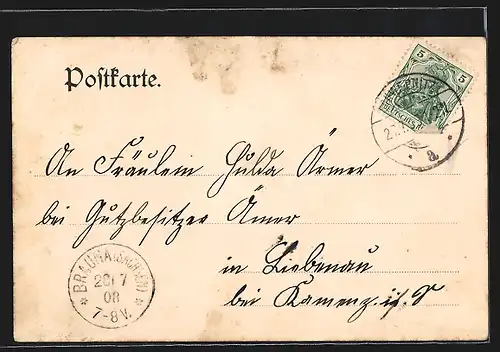 Postkarte.
5 5
DEUTSCHES
a
An Fräulein Hulda Armer
bei Gutzbesitzer Armer
in Liebenau
bei Kamenz i. S
BRAUNA (SACHSEN)
20 7
08
7-8V.